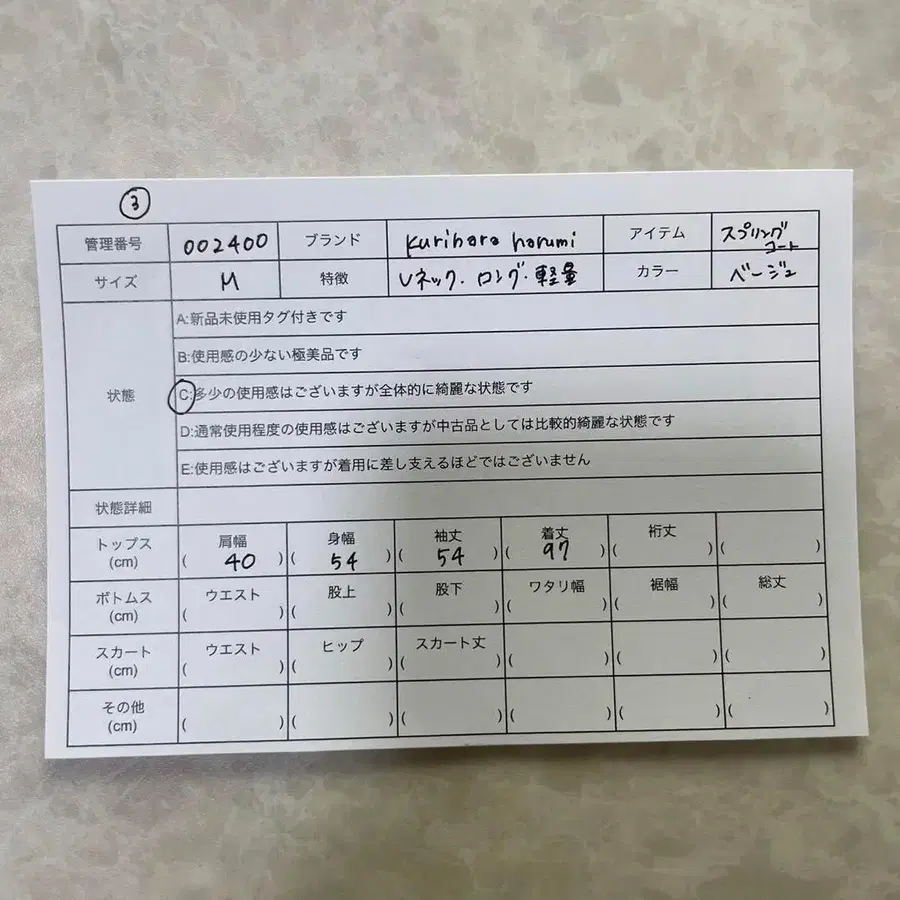 ③
管理番号 002400 ブランド kurihara harumi アイテム スプリングコート
サイズ M 特徴 Vネック・ロング・軽量 カラー ベージュ
状態
A:新品未使用タグ付きです
B:使用感の少ない極美品です
C:多少の使用感はございますが全体的に綺麗な状態です
D:通常使用程度の使用感はございますが中古品としては比較的綺麗な状態です
E:使用感はございますが着用に差し支えるほどではございません
状態詳細
トップス(cm) 肩幅(40) 身幅(54) 袖丈(54) 着丈(97) 裄丈( ) ( )
ボトムス(cm) ウエスト( ) 股上( ) 股下( ) ワタリ幅( ) 裾幅( ) 総丈( )
スカート(cm) ウエスト( ) ヒップ( ) スカート丈( ) ( ) ( ) ( )
その他(cm) ( ) ( ) ( ) ( ) ( ) ( )